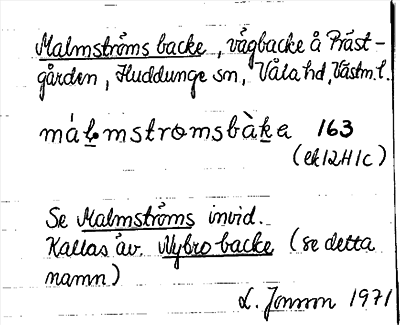 Malmströms backe, vägbacke å Präst-
gården, Huddunge sn, Våla hd, Västm. l.
mál̠mstromsbàka 163
(ek 12H1c)
Se Malmströms invid.
Kallas äv. Nybro backe (se detta
namn)
L. Jonson 1971